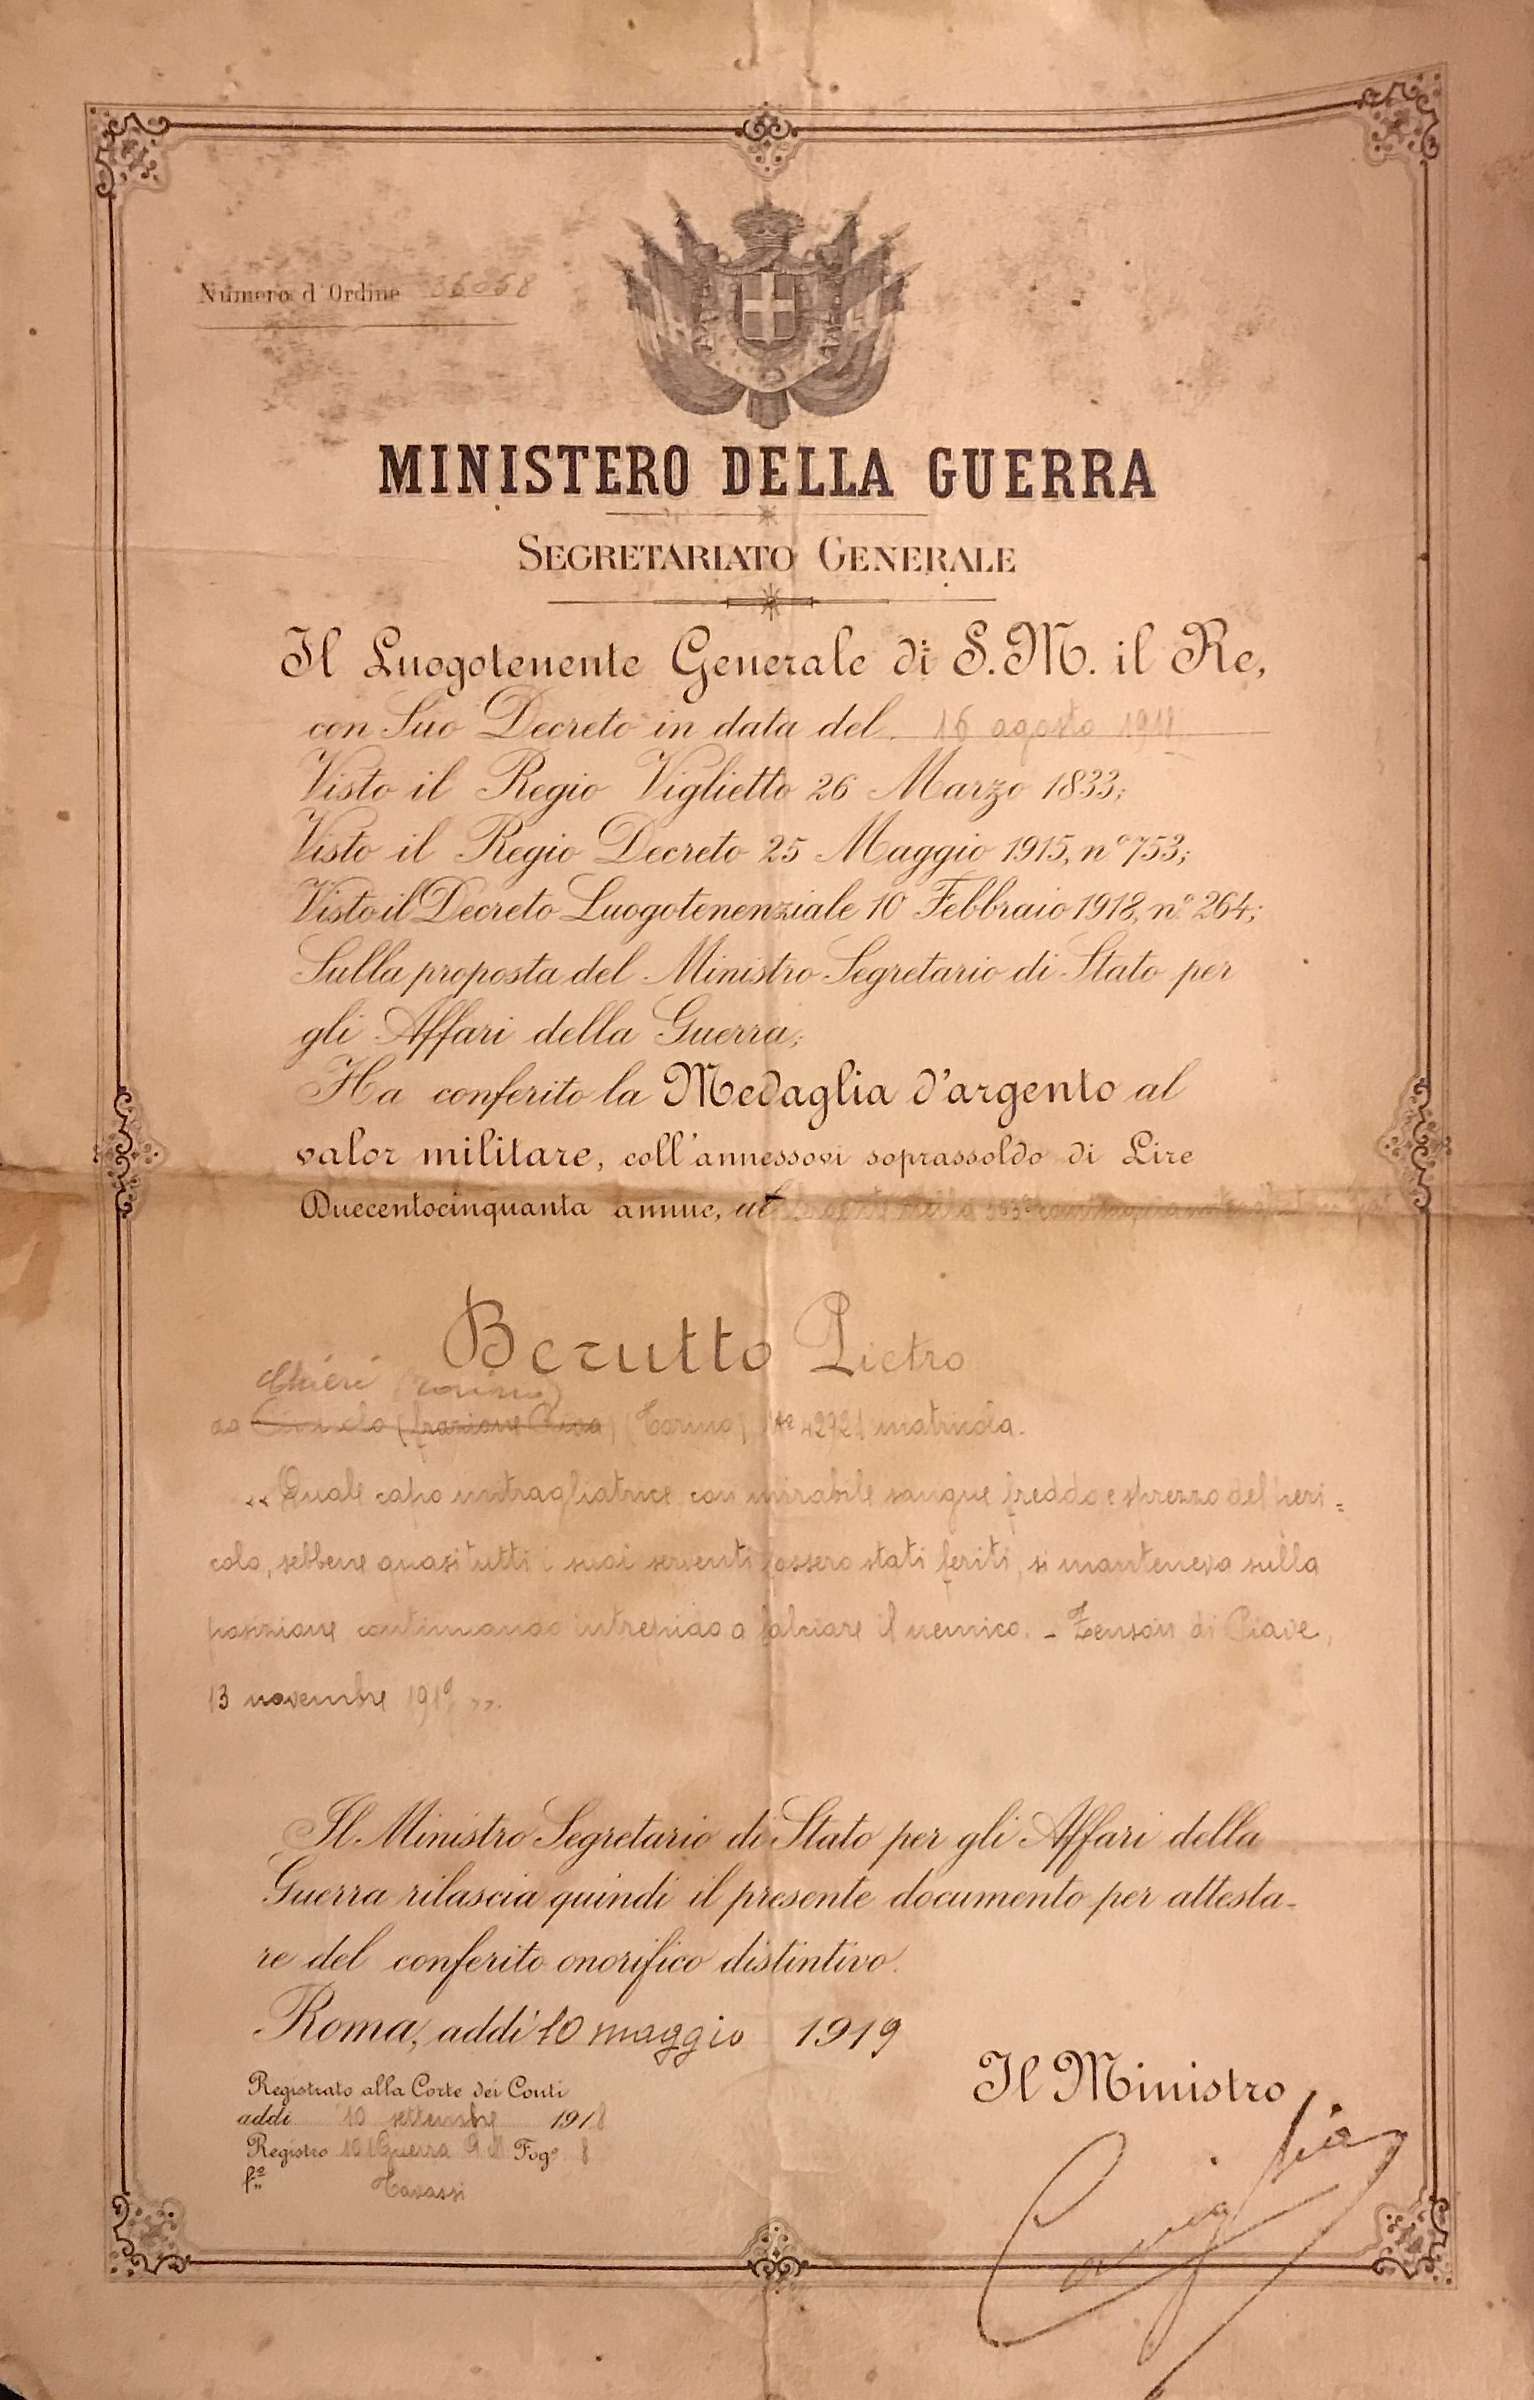 Numero d'Ordine 36068
MINISTERO DELLA GUERRA
SEGRETARIATO GENERALE
Il Luogotenente Generale di S. M. il Re,
con Suo Decreto in data del 16 agosto 1918
Visto il Regio Viglietto 26 Marzo 1833;
Visto il Regio Decreto 25 Maggio 1915, n° 753;
Visto il Decreto Luogotenenziale 10 Febbraio 1918, n° 264;
Sulla proposta del Ministro Segretario di Stato per
gli Affari della Guerra;
Ha conferito la Medaglia d'argento al
valor militare, coll'annessovi soprassoldo di Lire
Duecentocinquanta annue, al
Berutto Pietro
Chieri (Torino)
da (frazione Riva) (Torino) 42721 matricola.
« Quale capo mitragliatrice, con mirabile sangue freddo e sprezzo del peri=
colo, sebbene quasi tutti i suoi serventi fossero stati feriti, si manteneva sulla
posizione continuando intrepido a falciare il nemico. - Zenson di Piave,
13 novembre ».
Il Ministro Segretario di Stato per gli Affari della
Guerra rilascia quindi il presente documento per attesta-
re del conferito onorifico distintivo.
Roma, addì 10 maggio 1919
Il Ministro
Registrato alla Corte dei Conti
addì 10 settembre 1918
Registro 101 Guerra Fog° 8
f.° Tavassi